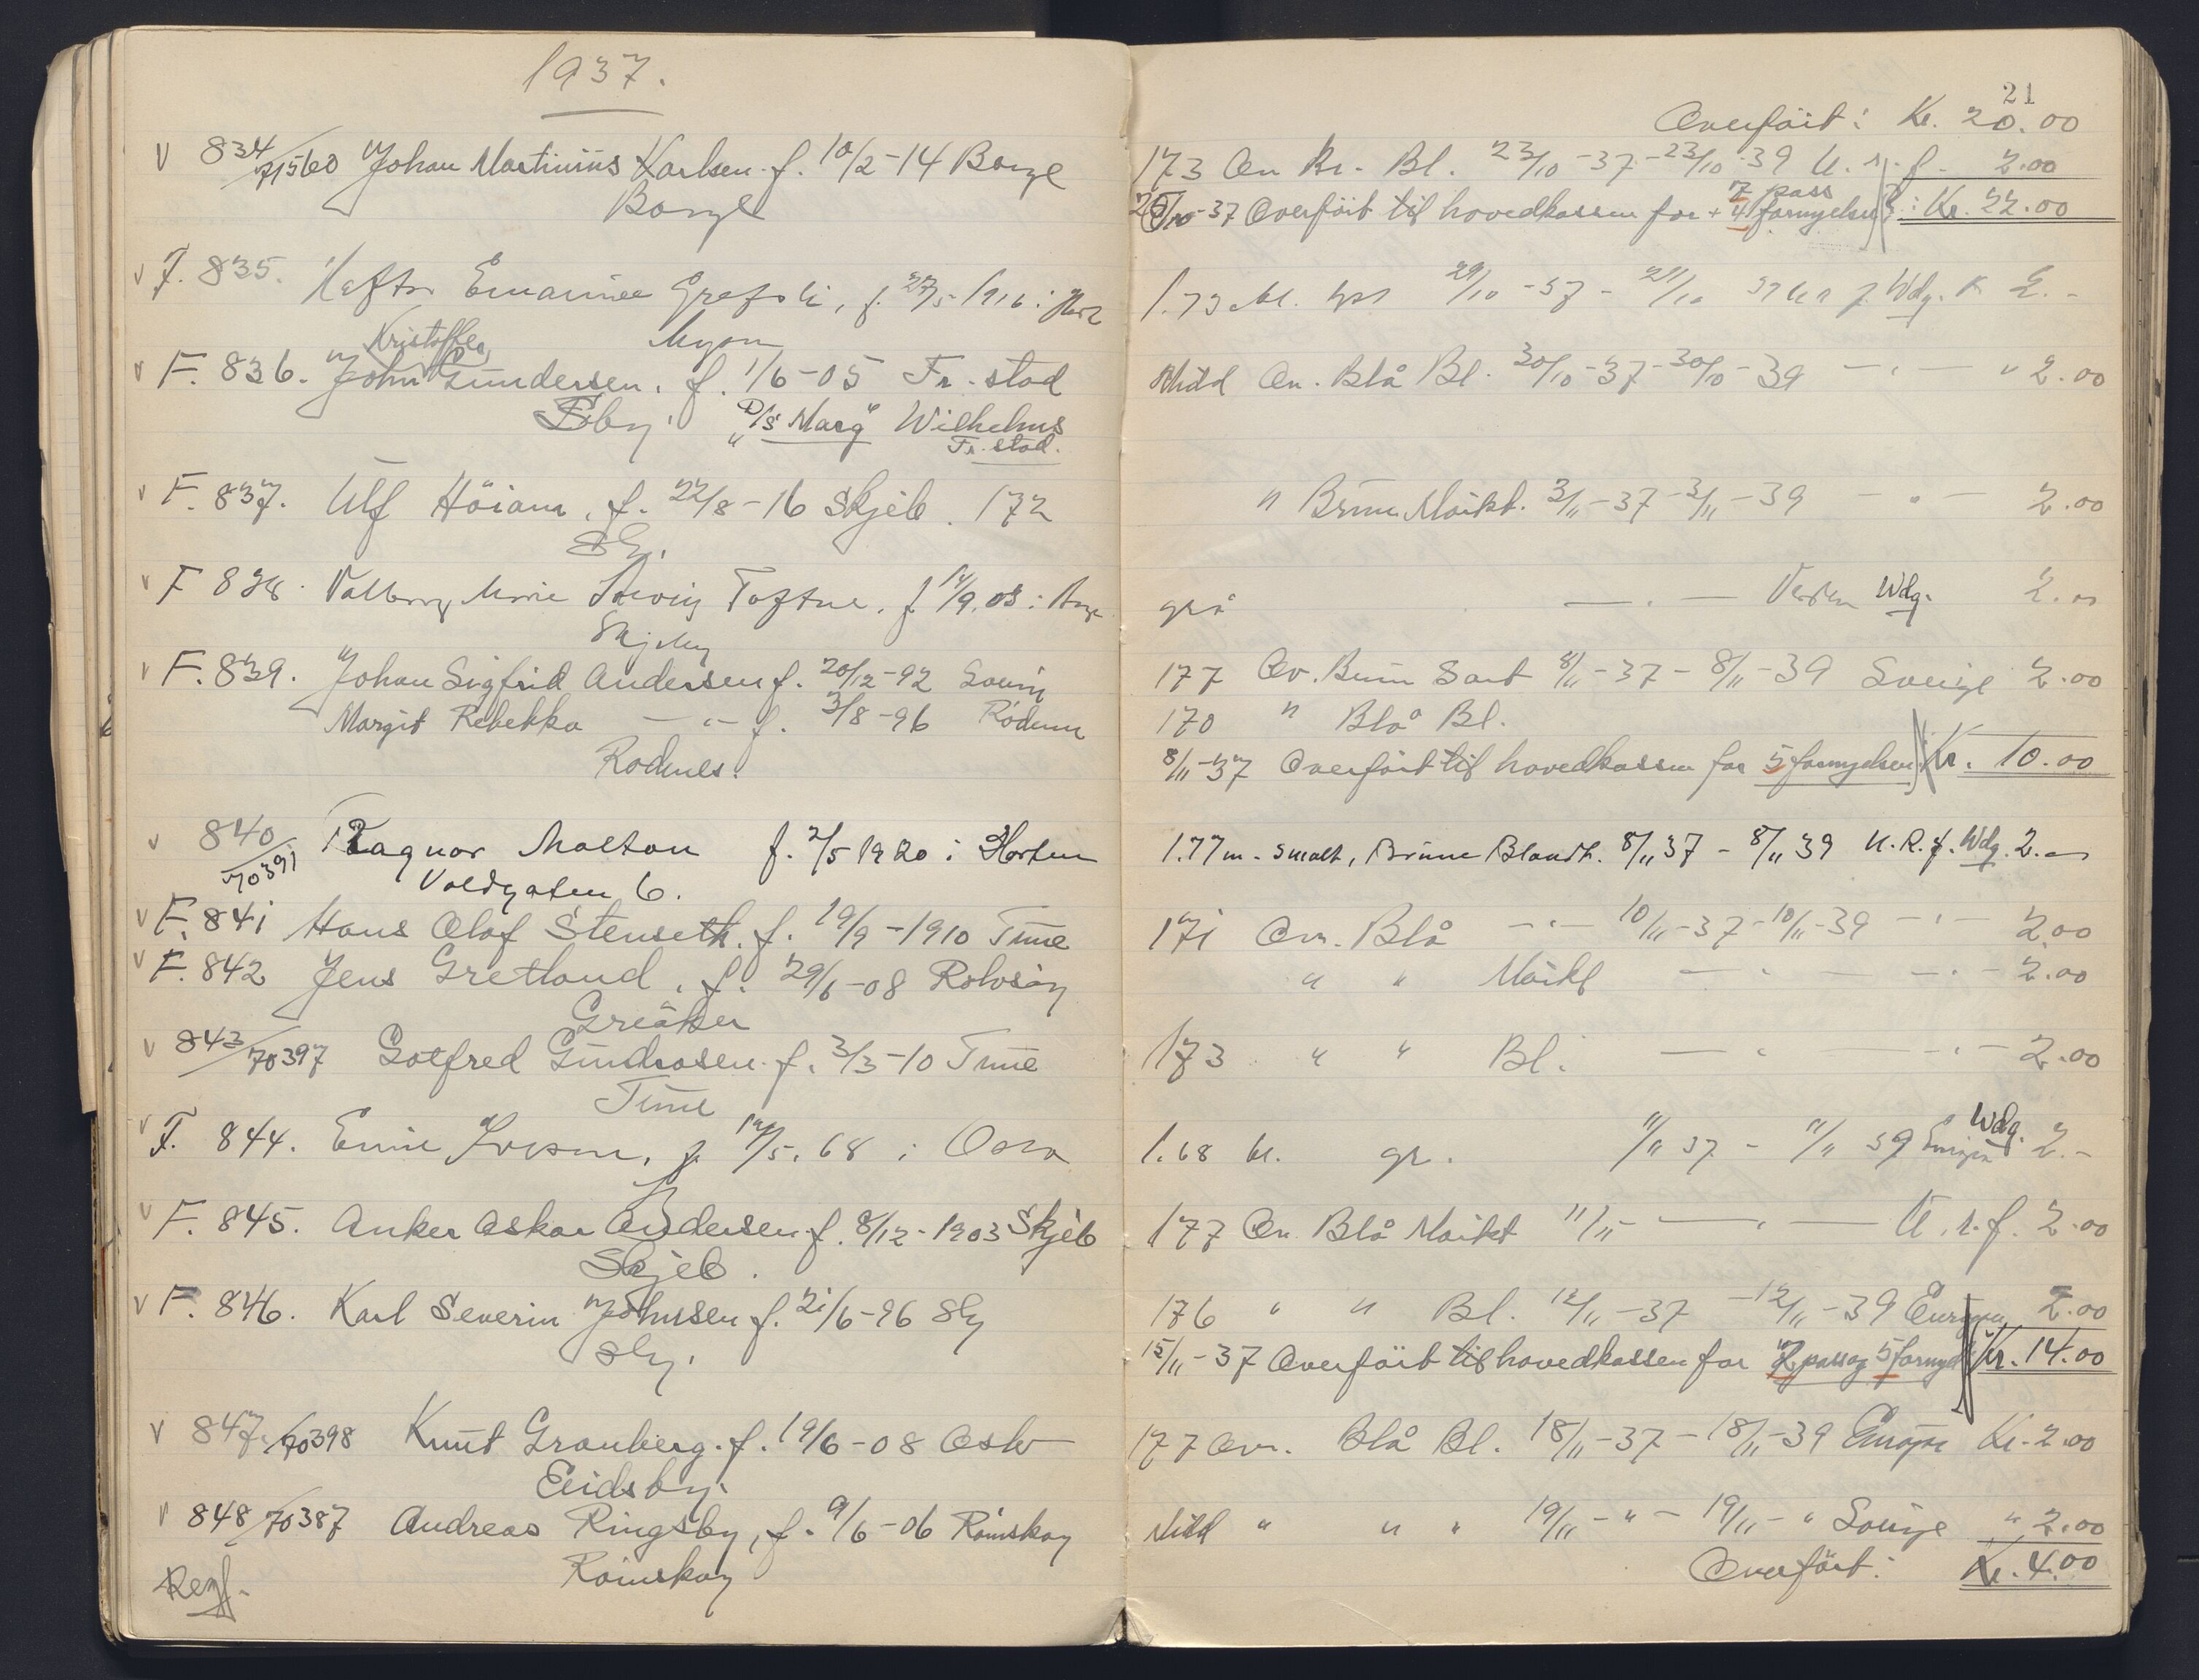 1937.
V 834/71560 Johan Martinius Karlsen f. 10/2-14 Borge
Borge
V F. 835. Emanuel f. 27/5-1916 i
Kristoffer
V F. 836. John Gundersen, f. 1/6-05 Fr.stad
Sbg. "D/S Marg" Wilhelms
Fr.stad.
V F. 837. Ulf Höiam, f. 22/8-16 Skjeb. 172
Sbg.
V F 838. Valborg Marie Solveig Toftne, f. 14/9.03 i
V F. 839. Johan Sigfrid Andersen f. 20/12-92
Margit Rebekka —"— f. 3/8-96 Rödenes
Rödenes.
V 840/70391 Ragnar Molton f. 2/5 1920 i Horten
Voldgaten 6.
V F. 841 Hans Olaf Stenseth. f. 19/9-1910 Tune
V F. 842 Jens Gretland, f. 29/6-08 Rolvsöy
Greåker
V 843/70397 Gotfred Gundrosen. f. 3/3-10 Tune
Tune
V F. 844. f. 5.68 i
V F. 845. Anker Oskar Andersen f. 8/12-1903 Skjeb
Skjeb.
V F. 846. Karl Severin Johnsen f. 21/6-96 Sbg
Sbg.
V 847/70398 Knut Granberg. f. 19/6-08 Oslo
Eidsbg.
V 848/70387 Andreas Ringsby, f. 9/6-06 Römskog
Römskog
21
Overfört: Kr. 20.00
173 Ov. Br. Bl. 23/10-37-23/10-39 U. r. f. 2.00
25/10-37 Overfört til hovedkassen for 7 pass + 4 fornyelser: Kr. 22.00
1.73 bl. 29/10-37 - 29/10 39 U r f. Wdg. K 2.-
Midd Ov. Blå Bl. 30/10-37-30/10-39 —"— " 2.00
" Brun Mörkt. 3/11-37-3/11-39 —"— 2.00
grå —"— Verden Wdg. 2.00
177 Ov. Brun Sort 8/11-37-8/11-39 Sverige 2.00
170 " Blå Bl.
8/11-37 Overfört til hovedkassen for 5 fornyelser Kr. 10.00
1.77 m. smalt, Brune Blondt. 8/11 37 - 8/11 39 U.R.f. Wdg. 2.-
171 Ov. Blå —"— 10/11-37-10/11-39 —"— 2.00
" " Mörkt —"— —"— 2.00
173 " " Bl. —"— —"— 2.00
1.68 bl. gr. 11/11 37 - 11/11 39 Europa Wdg. 2.-
177 Ov. Blå Mörkt 11/11 —"— U.r.f. 2.00
176 " " Bl. 12/11-37 -12/11-39 Europa 2.00
15/11-37 Overfört til hovedkassen for 2 pass og 5 fornyels Kr. 14.00
177 Ov. Blå Bl. 18/11-37-18/11-39 Europa Kr. 2.00
Midd " " " 19/11-"-19/11-" Sverige " 2.00
Overfört: Kr. 4.00